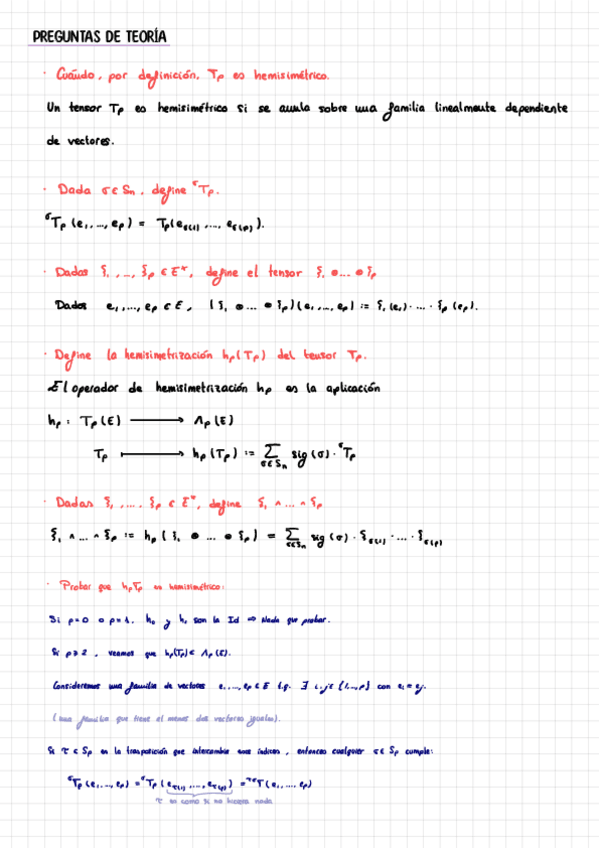 PREGUNTAS DE TEORÍA
· Cuándo, por definición, Tₚ es hemisimétrico.
Un tensor Tₚ es hemisimétrico si se anula sobre una familia linealmente dependiente
de vectores.
· Dada σ ∈ Sₙ, define ᵟTₚ.
ᵟTₚ (e₁, ..., eₚ) = Tₚ(e_σ(1), ..., e_σ(p)).
· Dados ξ₁, ..., ξₚ ∈ E*, define el tensor ξ₁ ⊗ ... ⊗ ξₚ
Dados e₁, ..., eₚ ∈ E, (ξ₁ ⊗ ... ⊗ ξₚ)(e₁, ..., eₚ) := ξ₁(e₁) · ... · ξₚ(eₚ).
· Define la hemisimetrización hₚ(Tₚ) del tensor Tₚ.
El operador de hemisimetrización hₚ es la aplicación
hₚ : Tₚ(E) ⟶ Λₚ(E)
Tₚ ⟼ hₚ(Tₚ) := Σ_{σ∈Sₙ} sig(σ) · ᵟTₚ
· Dadas ξ₁, ..., ξₚ ∈ E*, define ξ₁ ∧ ... ∧ ξₚ
ξ₁ ∧ ... ∧ ξₚ := hₚ(ξ₁ ⊗ ... ⊗ ξₚ) = Σ_{σ∈Sₙ} sig(σ) · ξ_σ(1) · ... · ξ_σ(p)
· Probar que hₚTₚ es hemisimétrico:
Si p=0 o p=1, h₀ y h₁ son la Id ⇒ Nada que probar.
Si p ≥ 2, veamos que hₚ(Tₚ) ∈ Λₚ(E).
Consideremos una familia de vectores e₁, ..., eₚ ∈ E t.q. ∃ i, j ∈ {1, ..., p} con eᵢ = eⱼ.
(una familia que tiene al menos dos vectores iguales).
Si τ ∈ Sₚ es la trasposición que intercambia esos índices, entonces cualquier σ ∈ Sₚ cumple:
ᵟTₚ(e₁, ..., eₚ) = ᵟTₚ(e_τ(1), ..., e_τ(p)) = ^{τσ}T(e₁, ..., eₚ)
τ es como si no hiciera nada